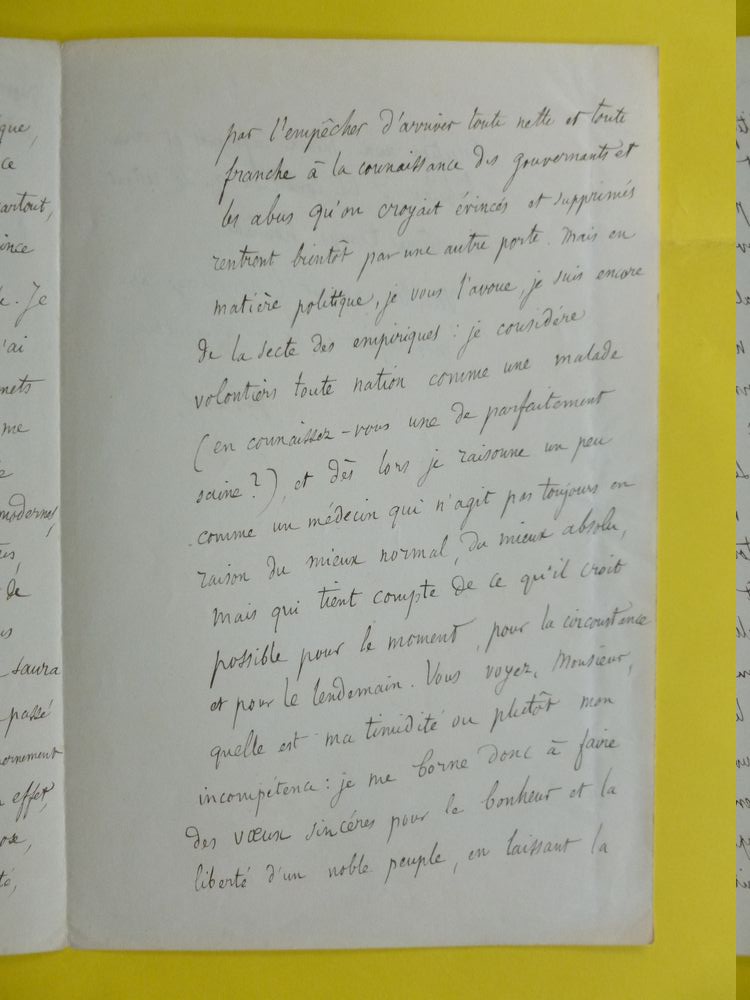 que,
ce
artout,
ince
. Je
'ai
mets
me
modernes,
de
saura
passé
ornement
effet,
ose,
té,
par l'empêcher d'arriver toute nette et toute
franche à la connaissance des gouvernants et
les abus qu'on croyait évincés et supprimés
rentrent bientôt par une autre porte. Mais en
matière politique, je vous l'avoue, je suis encore
de la secte des empiriques : je considère
volontiers toute nation comme une malade
(en connaissez-vous une de parfaitement
saine ?), et dès lors je raisonne un peu
comme un médecin qui n'agit pas toujours en
raison du mieux normal, du mieux absolu,
mais qui tient compte de ce qu'il croit
possible pour le moment, pour la circonstance
et pour le lendemain. Vous voyez, Monsieur,
quelle est ma timidité ou plutôt mon
incompétence : je me borne donc à faire
des vœux sincères pour le bonheur et la
liberté d'un noble peuple, en laissant la